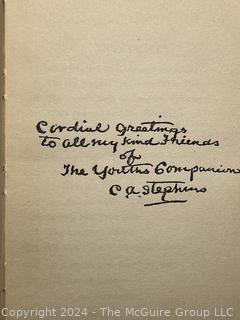 Cordial Greetings
to all my kind Friends
of
The Youths Companion
C. A. Stephens
Copyright 2024 - The McGuire Group LLC